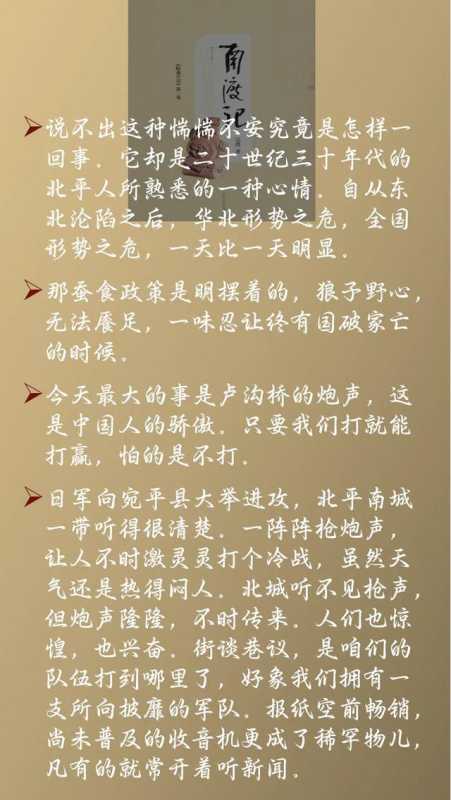 南渡记
说不出这种惴惴不安究竟是怎样一
回事．它却是二十世纪三十年代的
北平人所熟悉的一种心情．自从东
北沦陷之后，华北形势之危，全国
形势之危，一天比一天明显．
那蚕食政策是明摆着的，狼子野心，
无法餍足，一味忍让终有国破家亡
的时候．
今天最大的事是卢沟桥的炮声，这
是中国人的骄傲．只要我们打就能
打赢，怕的是不打．
日军向宛平县大举进攻，北平南城
一带听得很清楚．一阵阵枪炮声，
让人不时激灵灵打个冷战，虽然天
气还是热得闷人．北城听不见枪声，
但炮声隆隆，不时传来．人们也惊
惶，也兴奋．街谈巷议，是咱们的
队伍打到哪里了，好象我们拥有一
支所向披靡的军队．报纸空前畅销，
尚未普及的收音机更成了稀罕物儿，
凡有的就常开着听新闻．